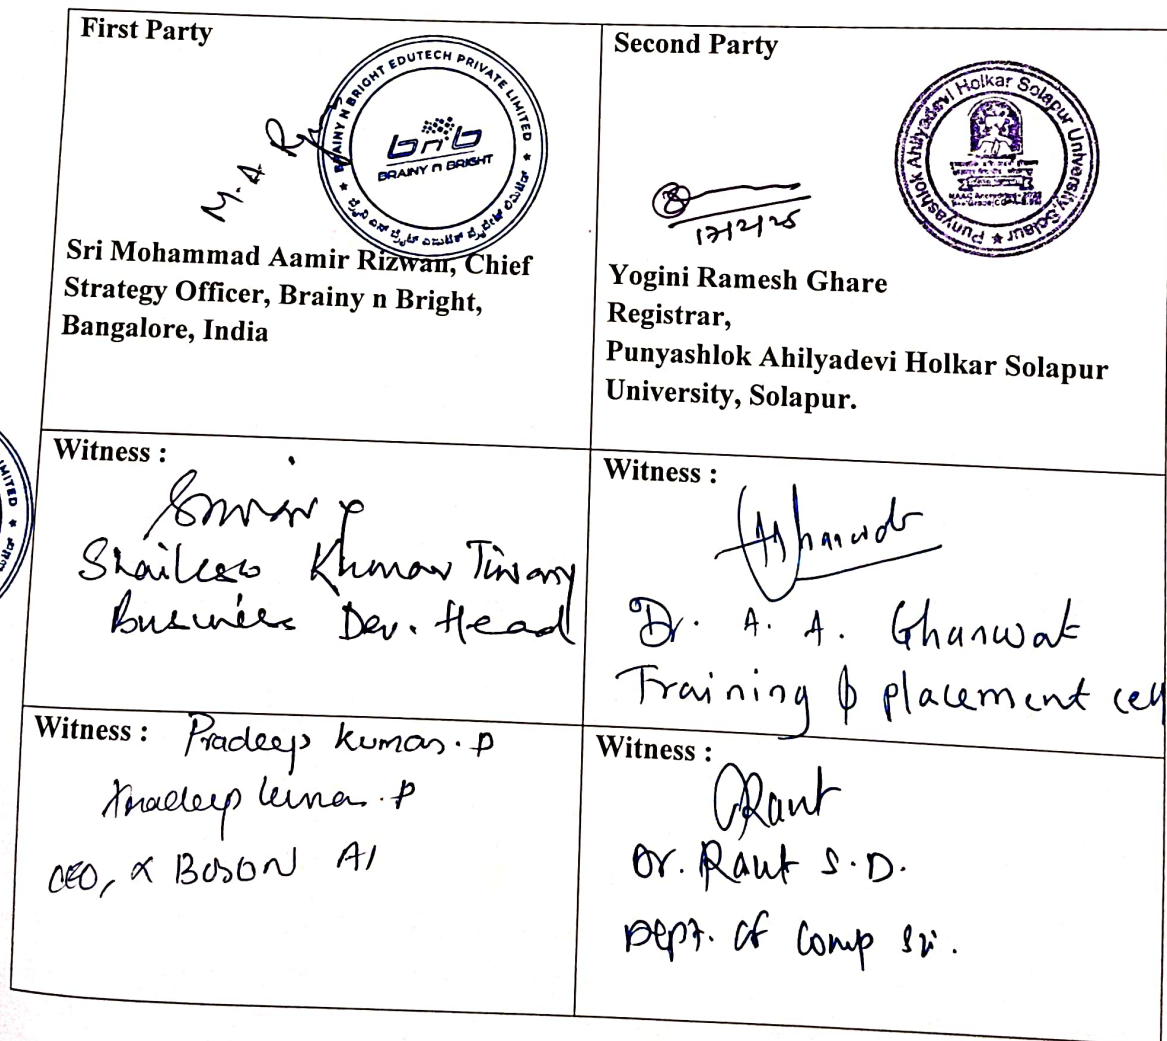 First Party
BRAINY N BRIGHT EDUTECH PRIVATE LIMITED
bnb
BRAINY n BRIGHT
M. A.
Sri Mohammad Aamir Rizwan, Chief
Strategy Officer, Brainy n Bright,
Bangalore, India
Second Party
Punyashlok Ahilyadevi Holkar Solapur University, Solapur
17/2/25
Yogini Ramesh Ghare
Registrar,
Punyashlok Ahilyadevi Holkar Solapur
University, Solapur.
Witness :
Khumar Tiwary
Business Dev. Head
Witness :
Dr. A. A. Ghanwat
Training & placement cell
Witness : Pradeep Kumar. P
Pradeep Kumar. P
CEO, α BOSON AI
Witness :
Raut
Dr. Raut S.D.
Dept. of Comp Sci.
MITED